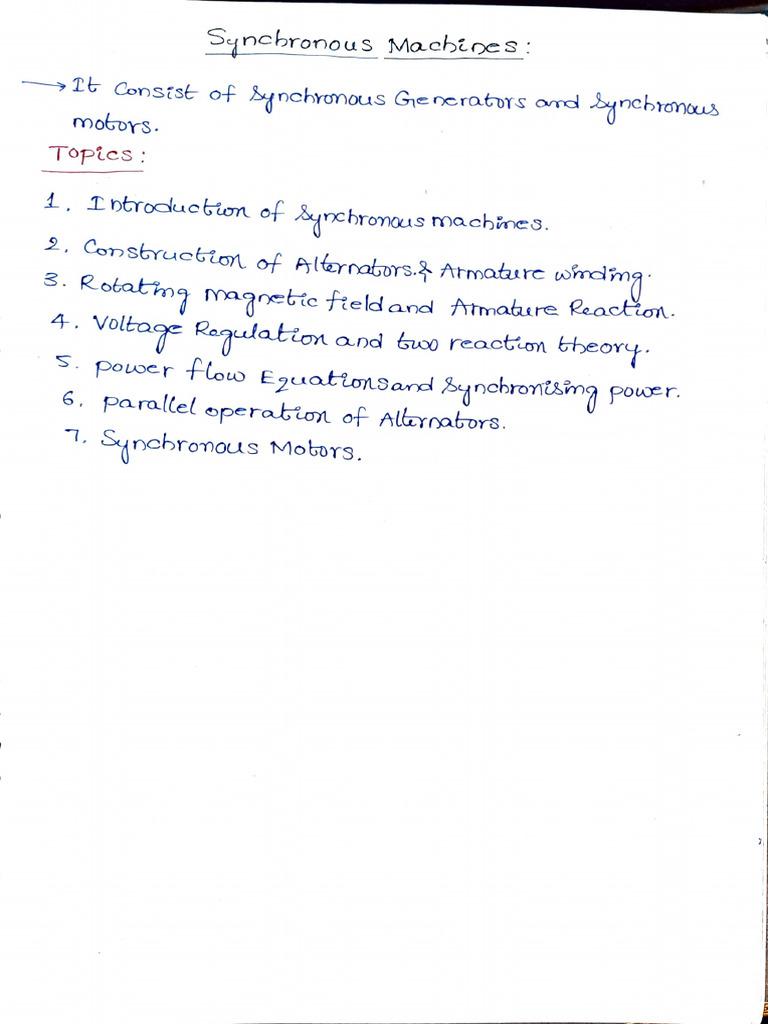 Synchronous Machines:
→ It Consist of Synchronous Generators and Synchronous
motors.
Topics:
1. Introduction of Synchronous machines.
2. Construction of Alternators.& Armature winding.
3. Rotating magnetic field and Armature Reaction.
4. Voltage Regulation and two reaction theory.
5. power flow Equations and Synchronising power.
6. parallel operation of Alternators.
7. Synchronous Motors.